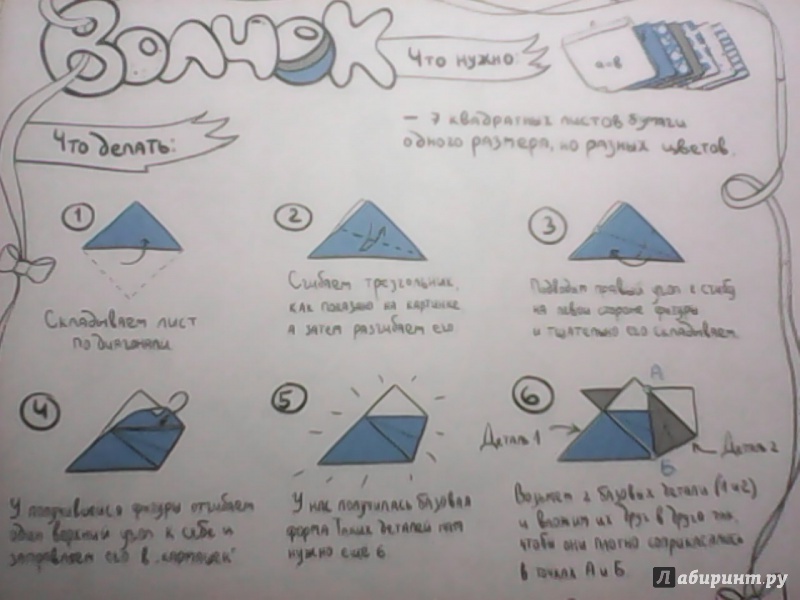 Волчок
Что нужно:
а=в
– 7 квадратных листов бумаги
одного размера, но разных цветов.
Что делать:
1
Складываем лист
по диагонали
2
Сгибаем треугольник,
как показано на картинке
а затем разгибаем его
3
Подводим правый угол к сгибу
на левой стороне фигуры
и тщательно его складываем
4
У получившейся фигуры отгибаем
один верхний угол к себе и
заправляем его в "кармашек"
5
У нас получилась базовая
форма Таких деталей нам
нужно еще 6
6
А
Деталь 1
Деталь 2
Б
Возьмем 2 базовых детали (1 и 2)
и вложим их друг в друга так,
чтобы они плотно соприкасались
в точках А и Б.
Лабиринт.ру